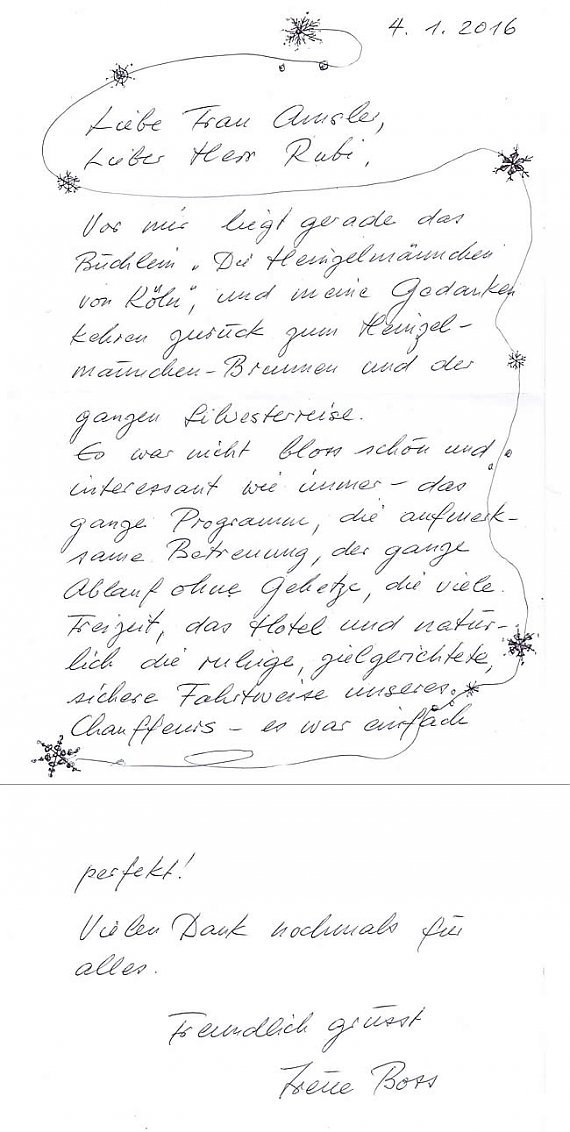 4. 1. 2016
Liebe Frau Amsler,
Lieber Herr Rubi,
Vor mir liegt gerade das
Büchlein „Die Heinzelmännchen
von Köln“, und meine Gedanken
kehren zurück zum Heinzel-
männchen-Brunnen und der
ganzen Silvesterreise.
Es war nicht bloss schön und
interessant wie immer – das
ganze Programm, die aufmerk-
same Betreuung, der ganze
Ablauf ohne Gehetze, die viele
Freizeit, das Hotel und natür-
lich die ruhige, zielgerichtete,
sichere Fahrtweise unseres
Chauffeurs – es war einfach
perfekt!
Vielen Dank nochmals für
alles.
Freundlich grüsst
Irène Boss